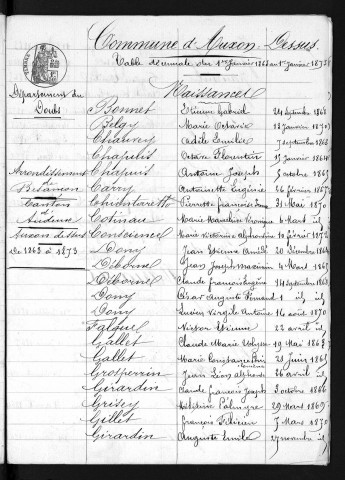 Commune d'Auxon-Dessus
Table décennale du 1er Janvier 1863 au 1er Janvier 1873
Département du
Doubs
Arrondissement
de
Besançon
Canton
d'
Audeux
Auxon-dessus
De 1863 à 1873
Naissances
Bonnet Etienne Gabriel 24 Septembre 1863
Belgy Marie Octavie 18 Janvier 1870
Chauvey Adèle Emilie 7 septembre 1868
Chapuis Octave Florentin 15 janvier
Chapuis Antoine Joseph 5 octobre 1865
Carry Antoinette Eugénie 26 février 1867
Pierrette françoise 31 Mai 1870
Cotinau Marie Véronique 6 Mars id
Marie Victorine Alphonsine 19 février 1872
Dony Jean Etienne 20 Décembre 1864
Déborne Jean Joseph 4 Mars 1865
Déborne Claude françois 14 Septembre 1868
Dony César Auguste Fernand 1 id
Dony Lucien Virgile Antoine 16 août 1870
Victor Etienne 22 avril id
Gallet Claude Marie 19 Mai 1863
Gallet Marie Constance 23 Juin 1865
Grosperrin Jean Léon Alphonse 26 avril id
Girardin Claude françois Joseph 3 octobre 1866
Grisey Delphine Palmyre 29 Mars 1869
Gillet françois Félicien 7 Mars 1870
Girardin Auguste Emile 27 novembre id